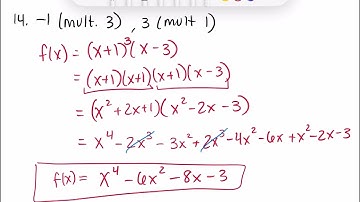 14. -1 (mult. 3) , 3 (mult 1)
f(x) = (x+1)³(x-3)
= (x+1)(x+1)(x+1)(x-3)
= (x²+2x+1)(x²-2x-3)
= x⁴-2x³-3x²+2x³-4x²-6x+x²-2x-3
f(x)= x⁴-6x²-8x-3